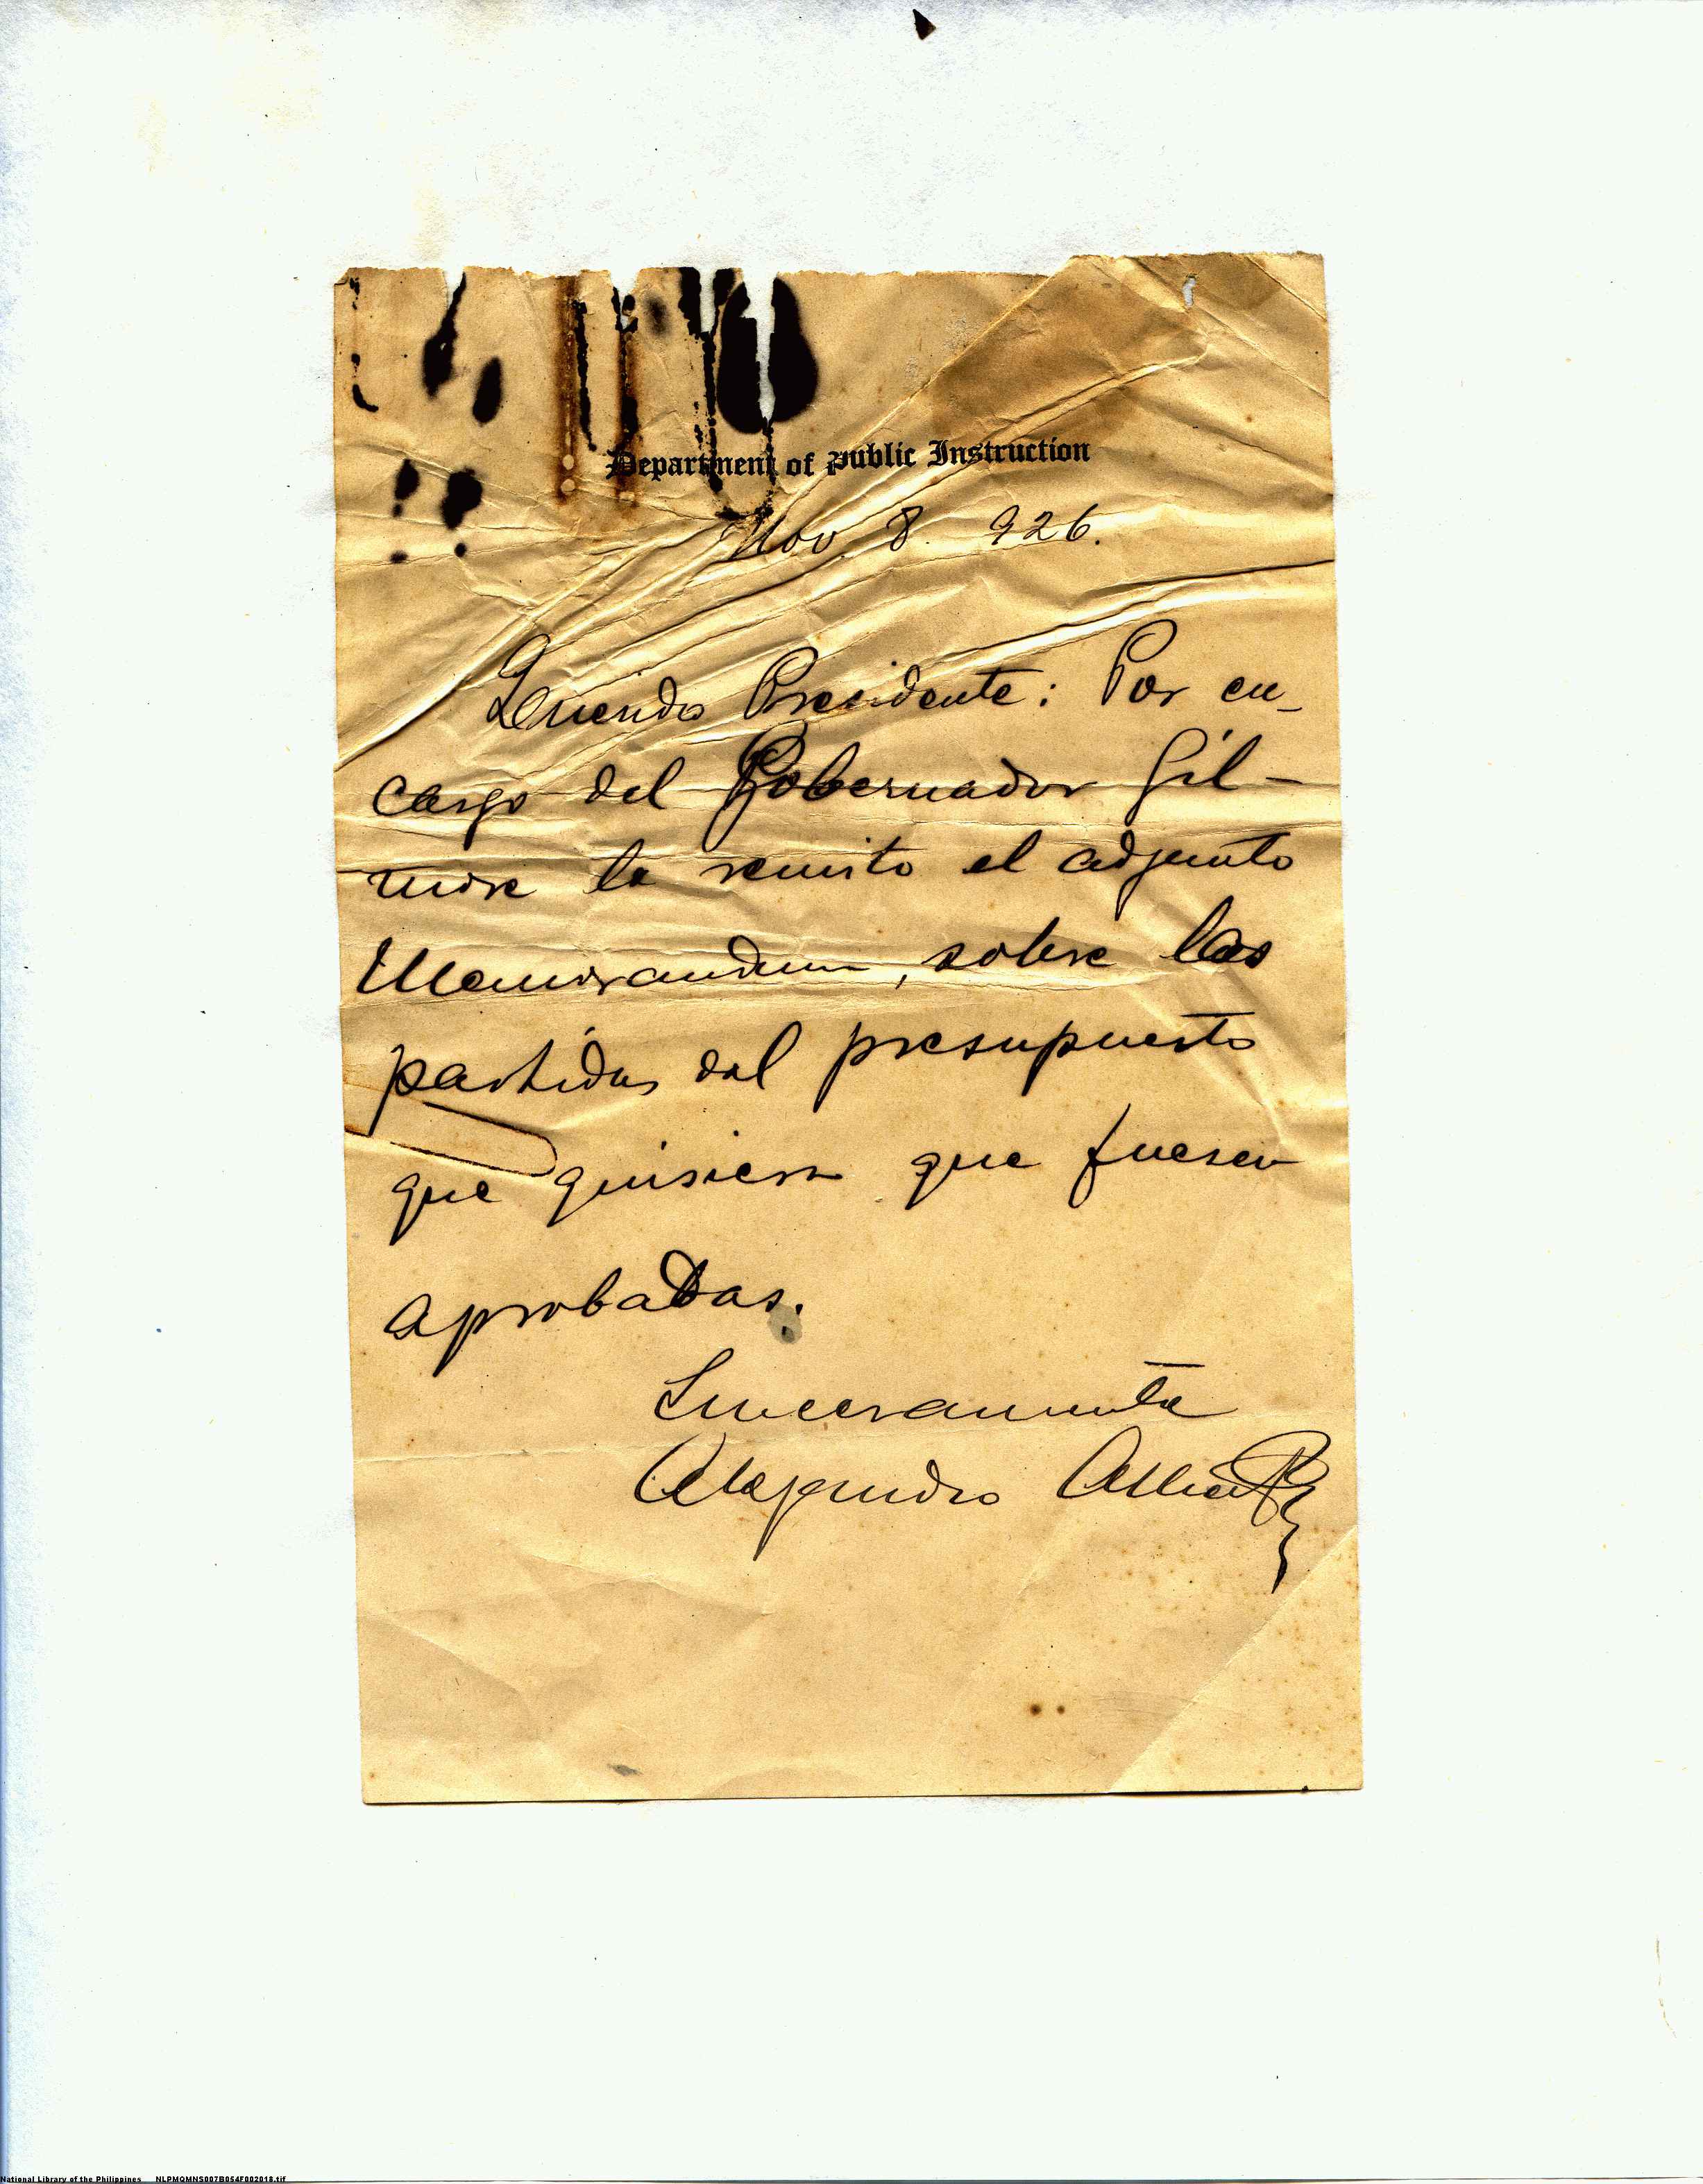 Department of Public Instruction
Nov. 8. 926.
Querido Presidente: Por en-
cargo del Gobernador Gil-
more le remito el adjunto
Memorandum, sobre las
partidas del presupuesto
que quisiera que fuesen
aprobadas.
Sinceramente
Alejandro Albert
National Library of the Philippines NLPMQMNS007B054F002018.tif